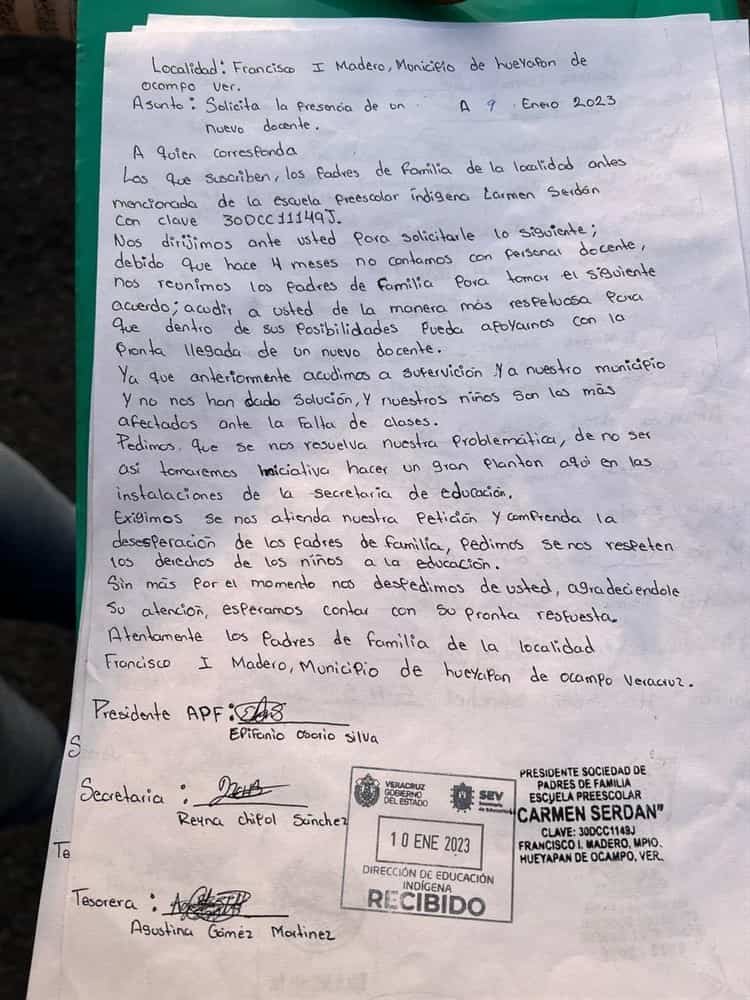 Localidad: Francisco I Madero, Municipio de hueyapan de
ocampo ver.
Asunto: Solicita la presencia de un A 9 Enero 2023
nuevo docente.
A quien corresponda
Los que suscriben, los padres de familia de la localidad antes
mencionada de la escuela preescolar indigena Carmen Serdán
con clave 30DCC11149J.
Nos dirijimos ante usted para solicitarle lo siguiente;
debido que hace 4 meses no contamos con personal docente,
nos reunimos los padres de familia para tomar el siguiente
acuerdo; acudir a usted de la manera más respetuosa para
que dentro de sus posibilidades pueda apoyarnos con la
pronta llegada de un nuevo docente.
Ya que anteriormente acudimos a supervición y a nuestro municipio
y no nos han dado solución, y nuestros niños son los más
afectados ante la falta de clases.
Pedimos que se nos resuelva nuestra problemática, de no ser
así tomaremos iniciativa hacer un gran planton aqui en las
instalaciones de la secretaria de educación.
Exigimos se nos atienda nuestra petición y comprenda la
desesperación de los padres de familia, pedimos se nos respeten
los derechos de los niños a la educación.
Sin más por el momento nos despedimos de usted, agradeciendole
su atención, esperamos contar con su pronta respuesta.
Atentamente los padres de familia de la localidad
Francisco I Madero, Municipio de hueyapan de ocampo Veracruz.
Presidente APF:
Epifanio Osorio Silva
Secretaria:
Reyna Chipol Sánchez
Tesorera:
Agustina Gómez Martinez
VERACRUZ
GOBIERNO
DEL ESTADO
SEV
Secretaría
de Educación
10 ENE 2023
DIRECCIÓN DE EDUCACIÓN
INDÍGENA
RECIBIDO
PRESIDENTE SOCIEDAD DE
PADRES DE FAMILIA
ESCUELA PREESCOLAR
"CARMEN SERDAN"
CLAVE: 30DCC1149J
FRANCISCO I. MADERO, MPIO.
HUEYAPAN DE OCAMPO, VER.